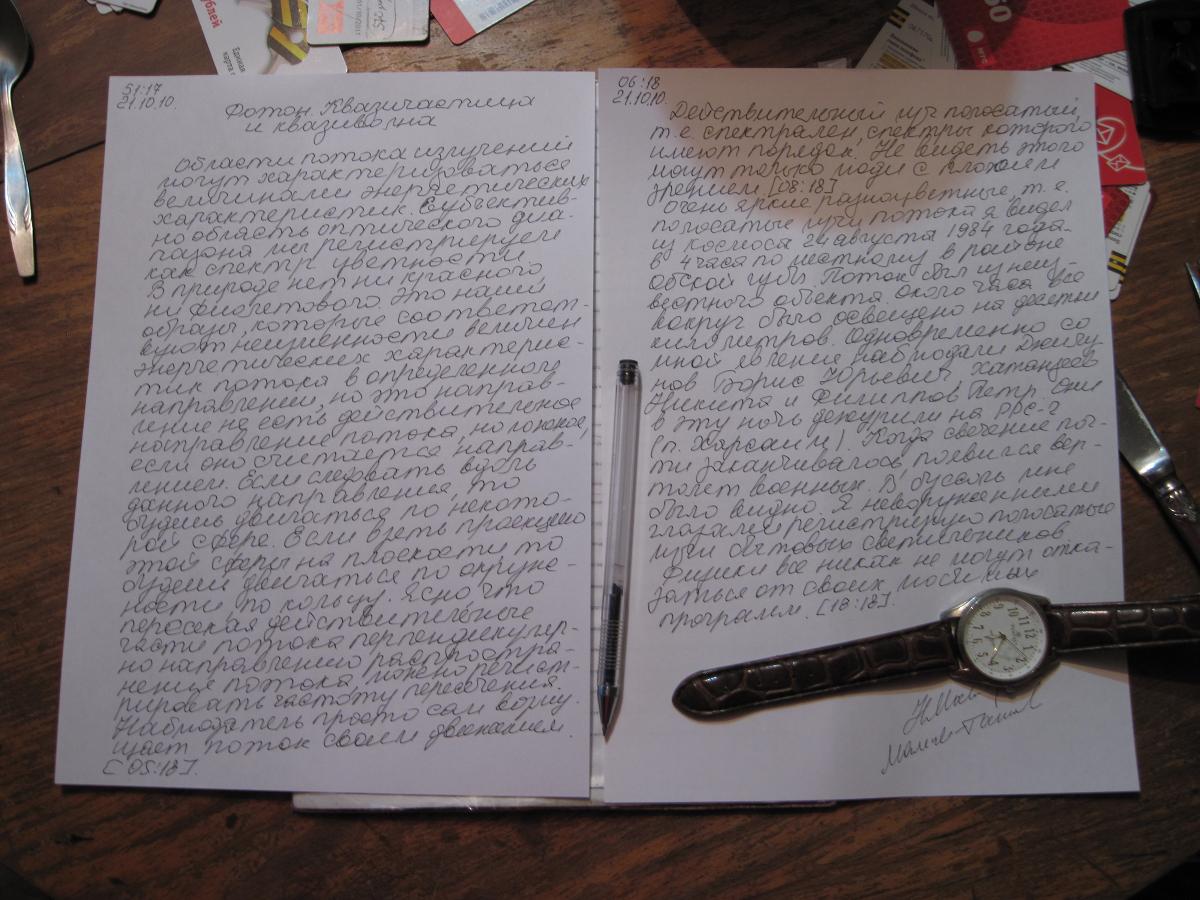 51:17
21.10.10.
Фотон. Квазичастица
и квазиволна
Области потока излучений
могут характеризоваться
величинами энергетических
характеристик. Субъектив-
но область оптического диа-
пазона мы регистрируем
как спектр цветности
В природе нет ни красного
ни фиолетового. Это наши
образы, которые соответст-
вуют неизменности величин
энергетических характерис-
тик потока в определенного
направлении, но это направ-
ление не есть действительное
направление потока, но ложное,
если оно считается направ-
лением. Если следовать вдоль
данного направления, то
будешь двигаться по некото-
рой сфере. Если взять проекцию
этой сферы на плоскости то
будем двигаться по окруж-
ности по кольцу. Ясно что
пересекая действительные
части потока перпендикуляр-
но направлению распростра-
нения потока можно регист-
рировать частоту пересечения.
Наблюдатель просто сам возму-
щает поток своим движением.
[05:18].
06:18
21.10.10.
Действительный луч полосатый,
т.е. спектрален, спектры которого
имеют порядок. Не видеть этого
могут только люди с плохим
зрением [08:18]
Очень яркие разноцветные, т.е.
полосатые лучи потока я видел
из космоса 24 августа 1984 года
в 4 часа по местному в районе
обской губы. Поток был из неиз-
вестного объекта. около часа все
вокруг было освещено на десятки
километров. Одновременно со
мной явление наблюдали
Борис Юрьевич,
Никита и Филиппов Петр. они
в эту ночь дежурили на РРС-2
(п. Харсаим). Когда свечение поч-
ти заканчивалось, появился вер-
толет военных. В буссоль мне
было видно. Я невооруженными
глазами регистрирую полосатые
лучи бытовых светильников
Физики все никак не могут отка-
заться от своих постных
программ. [18:18].